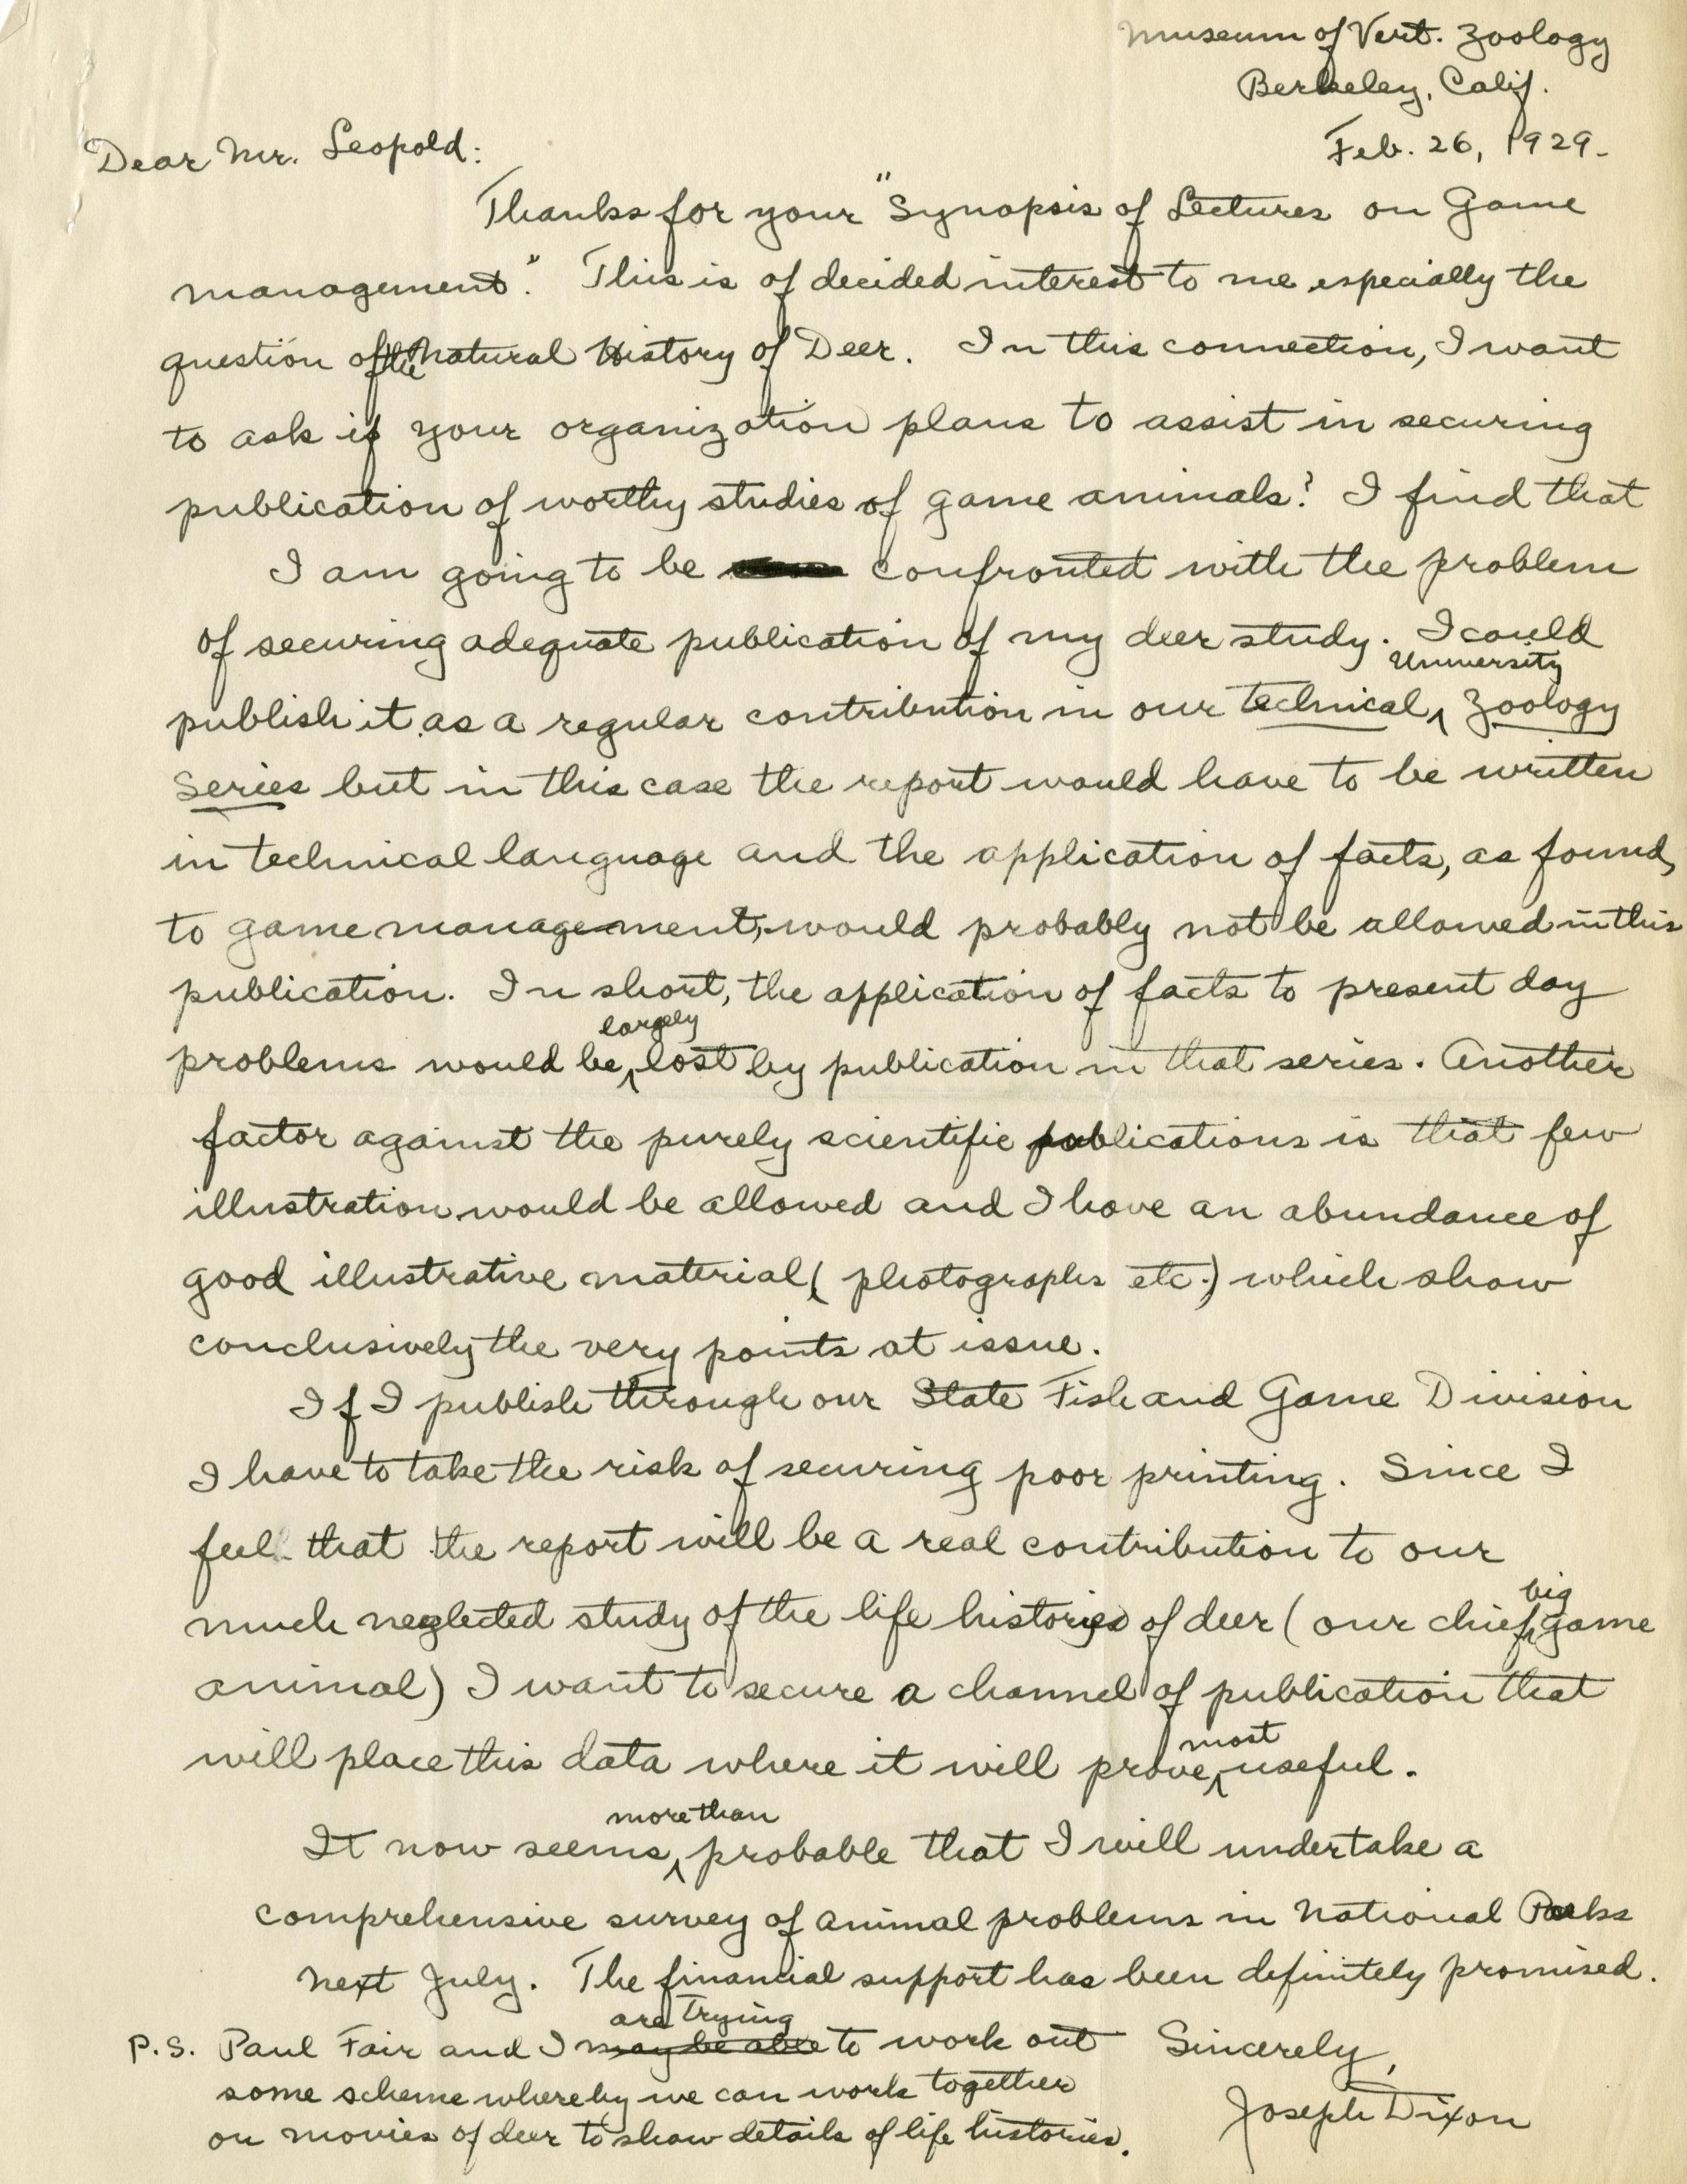 Museum of Vert. Zoology
Berkeley, Calif.
Feb. 26, 1929.
Dear Mr. Leopold:
Thanks for your "Synopsis of Lectures on Game
management." This is of decided interest to me especially the
question of the Natural History of Deer. In this connection, I want
to ask if your organization plans to assist in securing
publication of worthy studies of game animals? I find that
I am going to be confronted with the problem
of securing adequate publication of my deer study. I could
publish it as a regular contribution in our technical, University Zoology
Series but in this case the report would have to be written
in technical language and the application of facts, as found,
to game management, would probably not be allowed in this
publication. In short, the application of facts to present day
problems would be, largely lost by publication in that series. Another
factor against the purely scientific publications is that few
illustration would be allowed and I have an abundance of
good illustrative material (photographs etc.) which show
conclusively the very points at issue.
If I publish through our State Fish and Game Division
I have to take the risk of securing poor printing. Since I
feel that the report will be a real contribution to our
much neglected study of the life histories of deer (our chief big game
animal) I want to secure a channel of publication that
will place this data where it will prove most useful.
It now seems more than probable that I will undertake a
comprehensive survey of animal problems in National Parks
next July. The financial support has been definitely promised.
Sincerely,
Joseph Dixon
P.S. Paul Fair and I may be able are trying to work out
some scheme whereby we can work together
on movies of deer to show details of life histories.